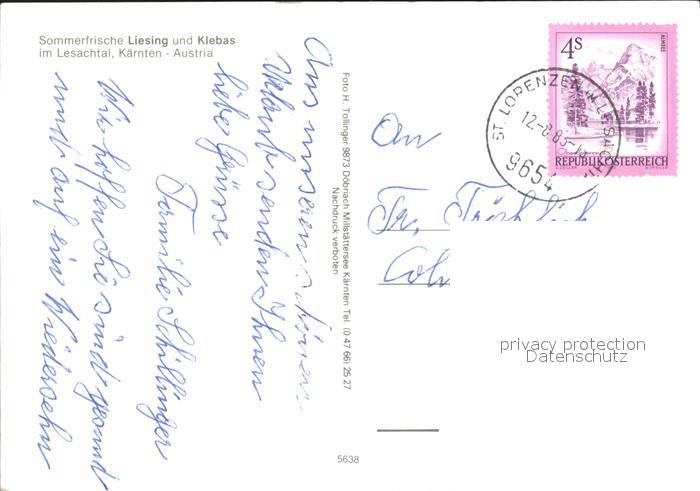 Sommerfrische Liesing und Klebas
im Lesachtal, Kärnten · Austria
Aus unserem schönen
Urlaub senden Ihnen
liebe Grüsse
Familie Schillinger
Wir hoffen Sie sind gesund
und auf ein Wiedersehn
Foto H. Tollinger 9873 Döbriach Millstättersee Kärnten Tel. (0 47 66) 25 27
Nachdruck verboten
5638
An
Fr. Fröhlich
4S
ALMSEE
REPUBLIK ÖSTERREICH
ST. LORENZEN IM LESACHTAL
9654
privacy protection
Datenschutz